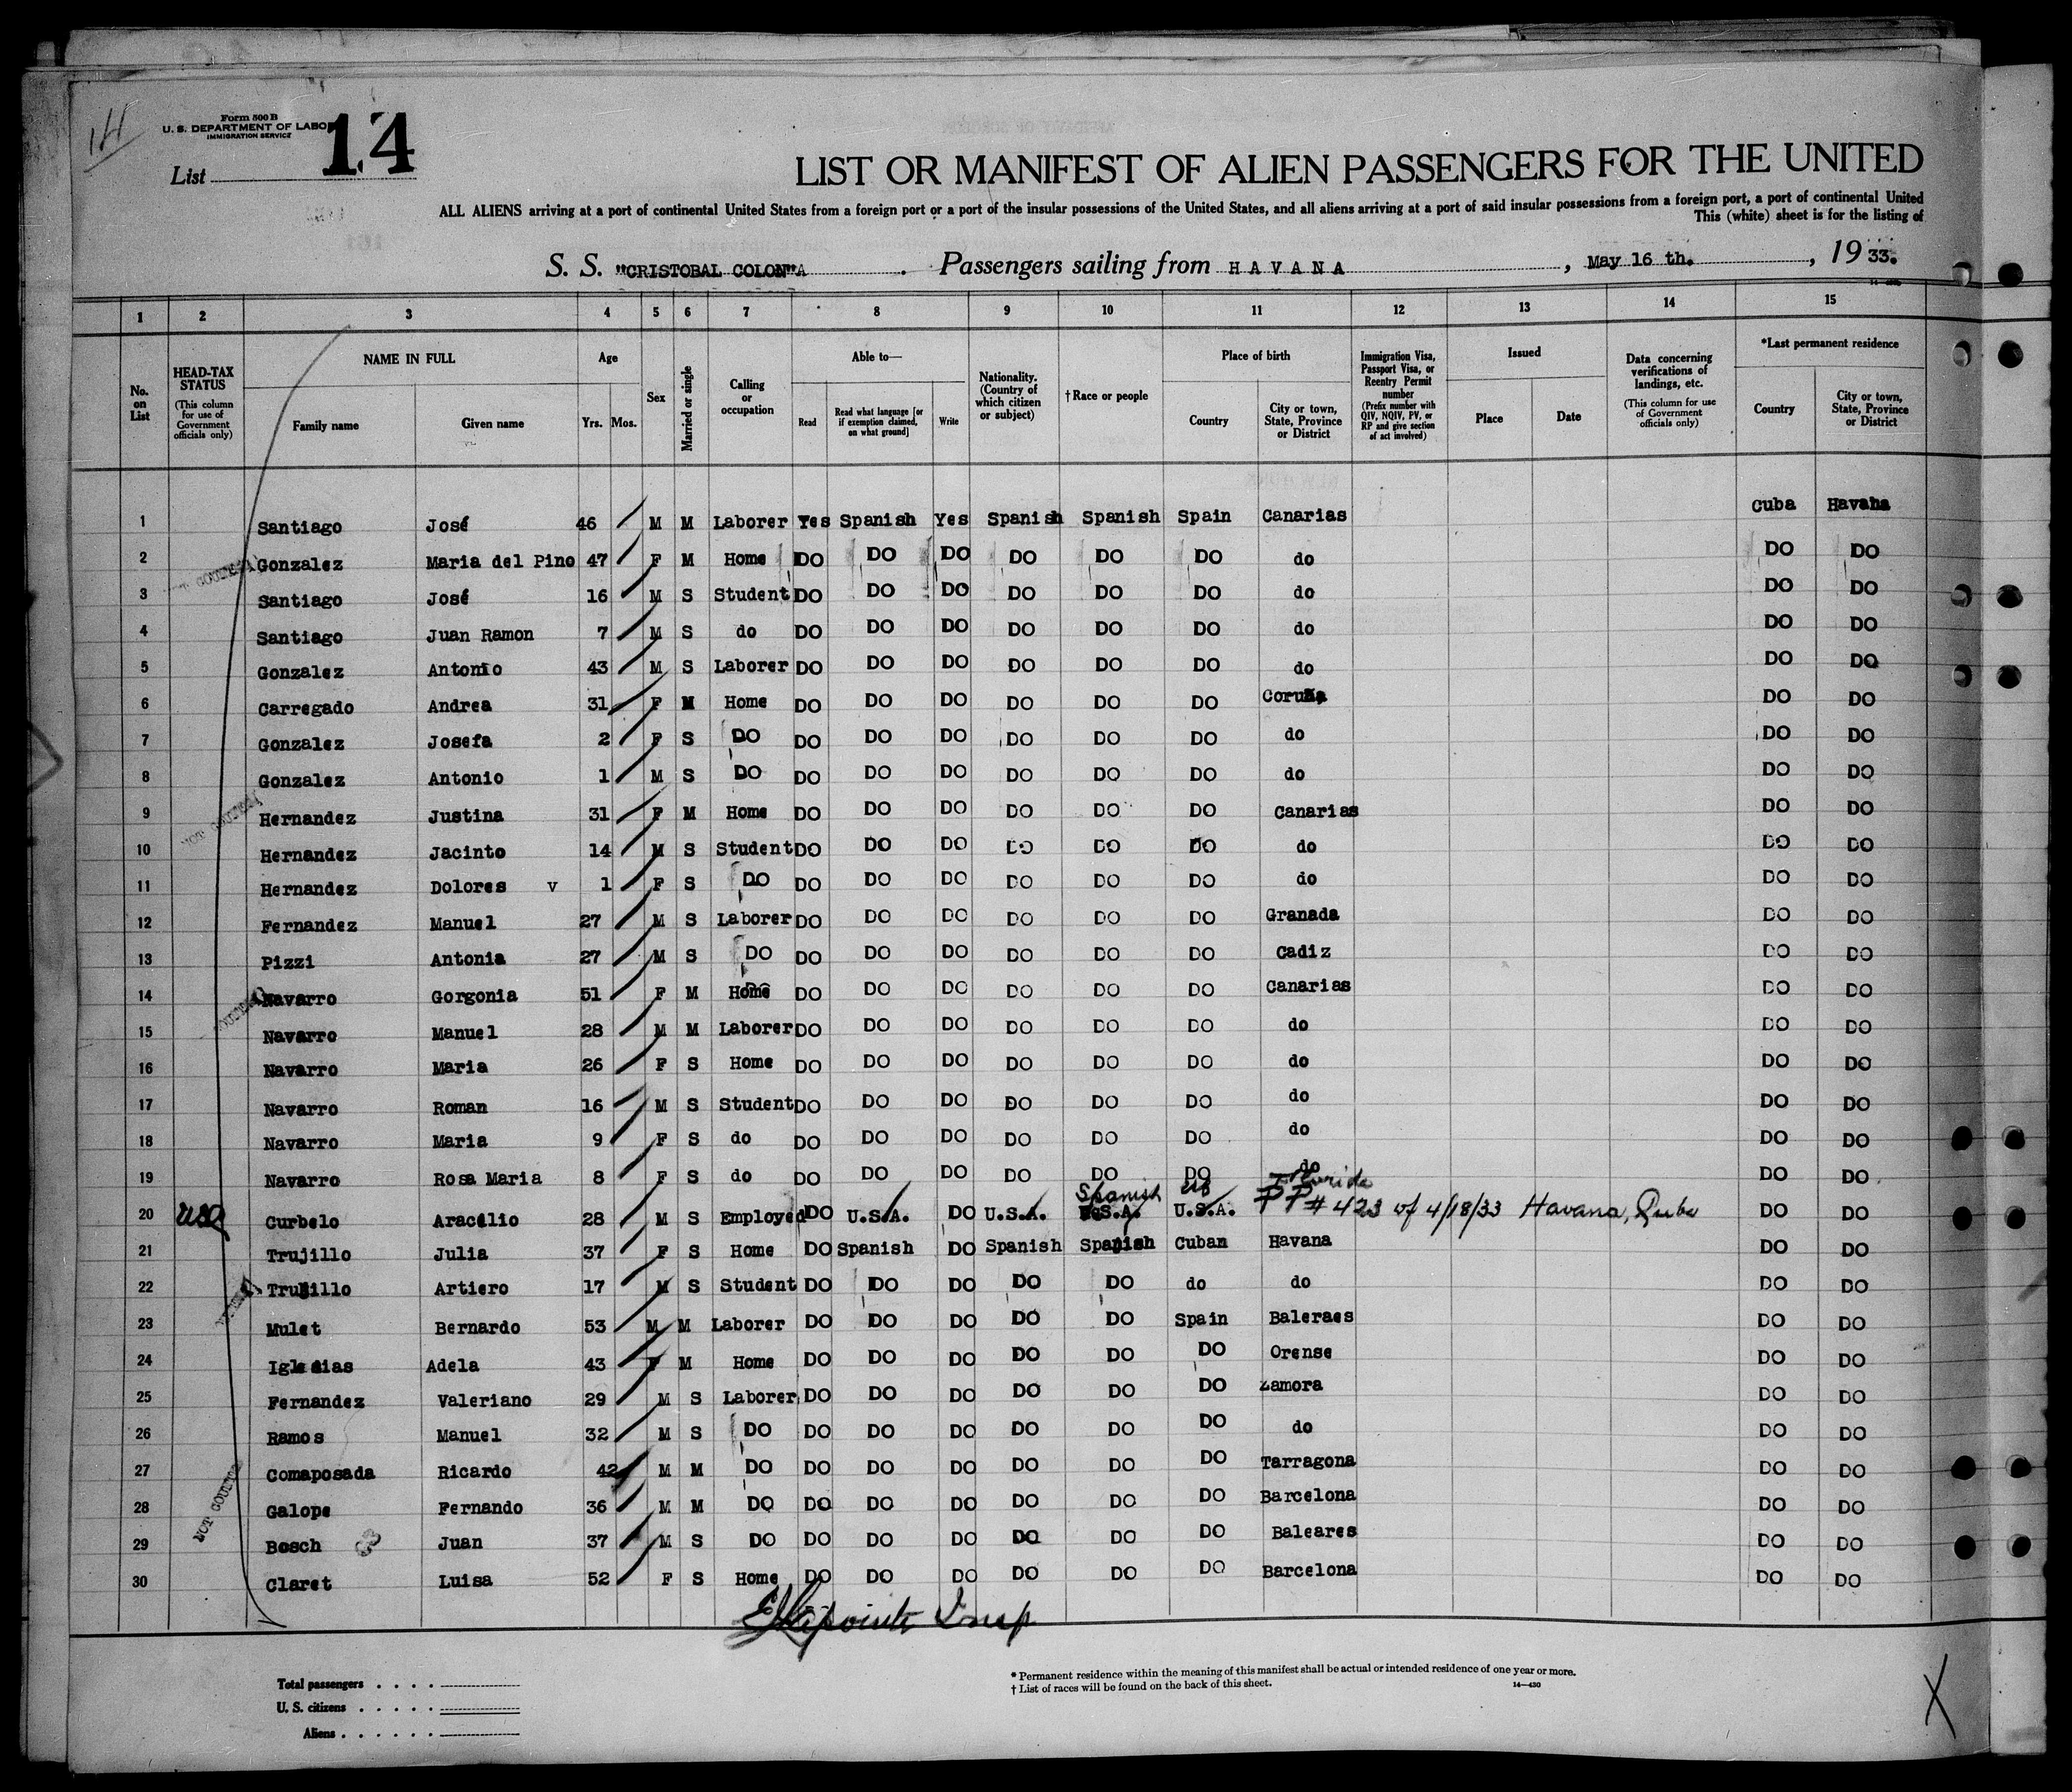 14
Form 500 B
U. S. DEPARTMENT OF LABOR
IMMIGRATION SERVICE
List 14
LIST OR MANIFEST OF ALIEN PASSENGERS FOR THE UNITED
ALL ALIENS arriving at a port of continental United States from a foreign port or a port of the insular possessions of the United States, and all aliens arriving at a port of said insular possessions from a foreign port, a port of continental United
This (white) sheet is for the listing of
S. S. "CRISTOBAL COLON"A . Passengers sailing from HAVANA , May 16 th. , 19 33.
1 2 3 4 5 6 7 8 9 10 11 12 13 14 15
No. on List
HEAD-TAX STATUS (This column for use of Government officials only)
NAME IN FULL
Family name Given name
Age
Yrs. Mos.
Sex
Married or single
Calling or occupation
Able to—
Read Read what language [or if exemption claimed, on what ground] Write
Nationality. (Country of which citizen or subject)
†Race or people
Place of birth
Country City or town, State, Province or District
Immigration Visa, Passport Visa, or Reentry Permit number (Prefix number with QIV, NQIV, PV, or RP and give section of act involved)
Issued
Place Date
Data concerning verifications of landings, etc. (This column for use of Government officials only)
*Last permanent residence
Country City or town, State, Province or District
1 Santiago José 46 M M Laborer Yes Spanish Yes Spanish Spanish Spain Canarias Cuba Havana
2 Gonzalez Maria del Pino 47 F M Home DO DO DO DO DO DO do DO DO
3 Santiago José 16 M S Student DO DO DO DO DO DO do DO DO
4 Santiago Juan Ramon 7 M S do DO DO DO DO DO DO do DO DO
5 Gonzalez Antonio 43 M S Laborer DO DO DO DO DO DO do DO DO
6 Carregado Andrea 31 F M Home DO DO DO DO DO DO Coruña DO DO
7 Gonzalez Josefa 2 F S DO DO DO DO DO DO DO do DO DO
8 Gonzalez Antonio 1 M S DO DO DO DO DO DO DO do DO DO
9 Hernandez Justina 31 F M Home DO DO DO DO DO DO Canarias DO DO
10 Hernandez Jacinto 14 M S Student DO DO DO DO DO DO do DO DO
11 Hernandez Dolores v 1 F S DO DO DO DO DO DO DO do DO DO
12 Fernandez Manuel 27 M S Laborer DO DO DO DO DO DO Granada DO DO
13 Pizzi Antonia 27 M S DO DO DO DO DO DO DO Cadiz DO DO
14 Navarro Gorgonia 51 F M Home DO DO DO DO DO DO Canarias DO DO
15 Navarro Manuel 28 M M Laborer DO DO DO DO DO DO do DO DO
16 Navarro Maria 26 F S Home DO DO DO DO DO DO do DO DO
17 Navarro Roman 16 M S Student DO DO DO DO DO DO do DO DO
18 Navarro Maria 9 F S do DO DO DO DO DO DO do DO DO
19 Navarro Rosa Maria 8 F S do DO DO DO DO DO DO do DO DO
Spanish US Florida
20 USC Curbelo Aracelio 28 M S Employed DO U.S.A. DO U.S.A. U.S.A. U.S.A. PP# 423 of 4/18/33 Havana, Cuba DO DO
21 Trujillo Julia 37 F S Home DO Spanish DO Spanish Spanish Cuban Havana DO DO
22 Trujillo Artiero 17 M S Student DO DO DO DO DO do do DO DO
23 Mulet Bernardo 53 M M Laborer DO DO DO DO DO Spain Baleraes DO DO
24 Iglesias Adela 43 F M Home DO DO DO DO DO DO Orense DO DO
25 Fernandez Valeriano 29 M S Laborer DO DO DO DO DO DO Zamora DO DO
26 Ramos Manuel 32 M S DO DO DO DO DO DO DO do DO DO
27 Comaposada Ricardo 42 M M DO DO DO DO DO DO DO Tarragona DO DO
28 Galope Fernando 36 M M DO DO DO DO DO DO DO Barcelona DO DO
NOT COUNTED
29 Bosch Juan 37 M S DO DO DO DO DO DO DO Baleares DO DO
30 Claret Luisa 52 F S Home DO DO DO DO DO DO Barcelona DO DO
Insp
Total passengers
U. S. citizens
Aliens
* Permanent residence within the meaning of this manifest shall be actual or intended residence of one year or more.
† List of races will be found on the back of this sheet.
14—430
X